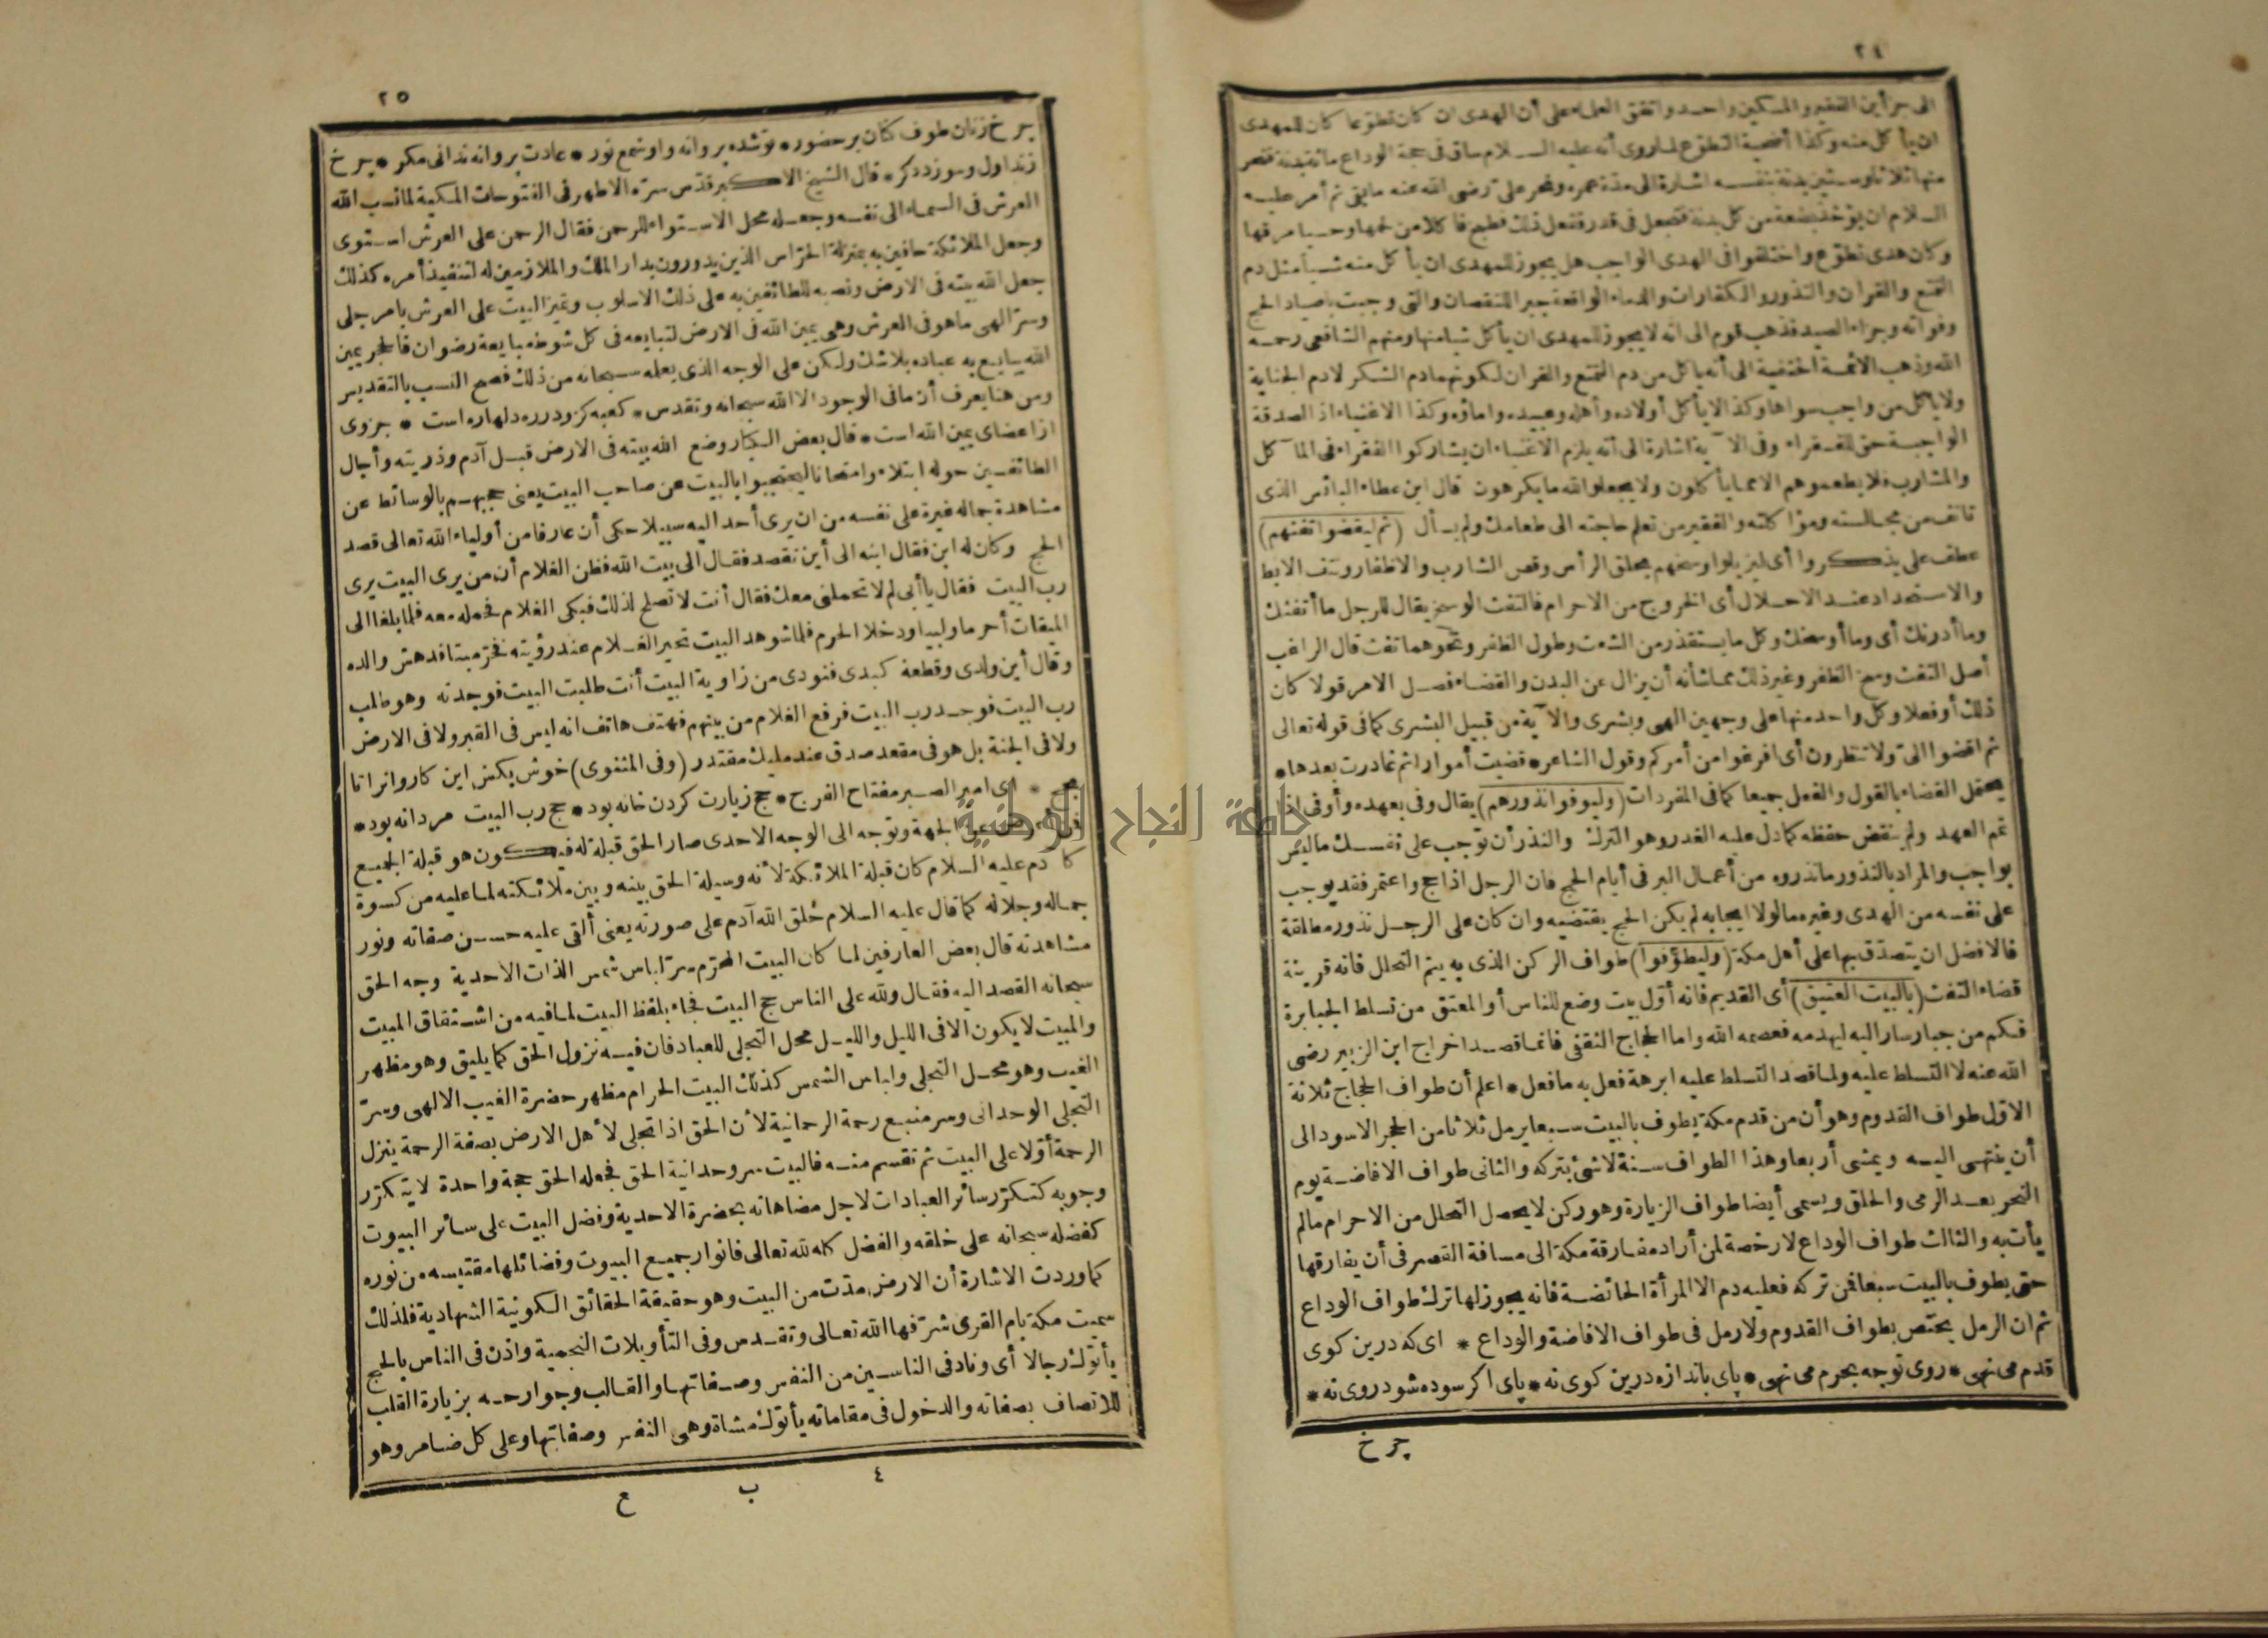 ٢٤
الى حراين الفقير والمسكين واحد واتفق العلماء على أن الهدى ان كان تطوّعا كان للمهدى
ان يأكل منه وكذا أضحية التطوّع لما روى أنه عليه السلام ساق فى حجة الوداع مائة بدنة فنحر
منها ثلاثا وستين بدنة بنفسه اشارة الى مدة عمره ونحر على رضى الله عنه ما بقى ثم أمر عليه
السلام ان يؤخذ بضعة من كل بدنة فتجعل فى قدر ففعل ذلك فطبخ فأكلا من لحمها وحسيا من مرقها
وكان هدى تطوّع واختلفوا فى الهدى الواجب هل يجوز للمهدى ان يأكل منه شيأ مثل دم
التمتع والقران والنذور والكفارات والدماء الواقعة جبرا للنقصان والتى وجبت بافساد الحج
وفواته وجزاء الصيد فذهب قوم الى انه لا يجوز للمهدى ان يأكل شيأ منها ومنهم الشافعى رحمه
الله وذهب الائمة الحنفية الى أنه يأكل من دم التمتع والقران لكونهما دم الشكر لا دم الجناية
ولا يأكل من واجب سواها وكذا لا يأكل أولاده وأهله وعبيده واماؤه وكذا الاغنياء اذ الصدقة
الواجبة حق للفقراء وفى الآية اشارة الى أنه يلزم الاغنياء ان يشاركوا الفقراء فى المآكل
والمشارب فلا يطعموهم الا مما يأكلون ولا يجعلوا لله ما يكرهون قال ابن عطاء البائس الذى
تأنف من مجالسته ومؤاكلته والفقير من تعلم حاجته الى طعامك ولم يسأل (ثم ليقضوا تفثهم)
عطف على يذكروا أى ليزيلوا وسخهم بحلق الرأس وقص الشارب والاظفار ونتف الابط
والاستحداد عند الاحلال أى الخروج من الاحرام فالتفث الوسخ يقال للرجل ما أتفثك
وما أدرنك أى وما أوسخك وكل ما يستقذر من الشعث وطول الظفر ونحوهما تفث قال الراغب
أصل التفث وسخ الظفر وغير ذلك مما شأنه أن يزال عن البدن والقضاء فصل الامر قولا كان
ذلك أو فعلا وكل واحد منها على وجهين الهى وبشرى والآية من قبيل البشرى كما فى قوله تعالى
ثم اقضوا الىّ ولا تنظرون أى افرغوا من أمركم وقول الشاعر * قضيت أمورا ثم غادرت بعدها *
يحتمل القضاء بالقول والفعل جميعا كما فى المفردات (وليوفوا نذورهم) يقال وفى بعهده وأوفى اذا
تمم العهد ولم ينقض حفظه كما دل عليه الغدر وهو الترك والنذر أن توجب على نفسك ما ليس
بواجب والمراد بالنذور ما نذروه من أعمال البر فى أيام الحج فان الرجل اذا حج واعتمر فقد يوجب
على نفسه من الهدى وغيره ما لولا ايجابه لم يكن الحج يقتضيه وان كان على الرجل نذور مطلقة
فالافضل ان يتصدّق بها على أهل مكة (وليطوّفوا) طواف الركن الذى به يتم التحلل فانه قرينة
قضاء التفث (بالبيت العتيق) أى القديم فانه أوّل بيت وضع للناس أو المعتق من تسلط الجبابرة
فكم من جبار سار اليه ليهدمه فعصمه الله واما الحجاج الثقفى فانما قصد اخراج ابن الزبير رضى
الله عنه لا التسلط عليه ولما قصد التسلط عليه ابرهة فعل به ما فعل * اعلم أن طواف الحجاج ثلاثة
الاوّل طواف القدوم وهو أن من قدم مكة يطوف بالبيت سبعا يرمل ثلاثا من الحجر الاسود الى
أن ينتهى اليه ويمشى أربعا وهذا الطواف سنة لا شئ بتركه والثانى طواف الافاضة يوم
النحر بعد الرمى والحلق ويسمى أيضا طواف الزيارة وهو ركن لا يحصل التحلل من الاحرام ما لم
يأت به والثالث طواف الوداع لا رخصة لمن أراد مفارقة مكة الى مسافة القصر فى أن يفارقها
حتى يطوف بالبيت سبعا فمن تركه فعليه دم الا المرأة الحائضة فانه يجوز لها ترك طواف الوداع
ثم ان الرمل يختص بطواف القدوم ولا رمل فى طواف الافاضة والوداع * اى كه درين كوى
قدم مى نهى * روى توجه بحرم مى نهى * پاى باندازه درين كوى نه * پاى اكر سوده شود روى نه *
چرخ
٢٥
چرخ زنان طوف كنان بر حضور * توشده پروانه واو شمع نور * عادت پروانه ندانى مكر * چرخ
زند اول وسوزد دكر * قال الشيخ الاكبر قدّس سرّه الاطهر فى الفتوحات المكية لما نسب الله
العرش فى السماء الى نفسه وجعله محل الاستواء للرحمن فقال الرحمن على العرش استوى
وجعل الملائكة حافين به بمنزلة الحرّاس الذين يدورون بدار الملك والملازمين له لتنفيذ أمره كذلك
جعل الله بيته فى الارض ونصبه للطائفين به على ذلك الاسلوب وتميز البيت على العرش بأمر جلى
وسرّ الهى ما هو فى العرش وهى يمين الله فى الارض لتبايعه فى كل شوط مبايعة رضوان فالحجر يمين
الله يبايع به عباده بلا شك ولكن على الوجه الذى يعلمه سبحانه من ذلك فصح النسب بالتقديس
ومن هنا يعرف أن ما فى الوجود الا الله سبحانه وتقدس * كعبه كزودر ره دلهاره است * جزوى
از اعضاى يمين الله است * قال بعض الكبار وضع الله بيته فى الارض قبل آدم وذريته وأجال
الطائفين حوله ابتلاء وامتحانا ليحتجبوا بالبيت عن صاحب البيت يعنى حجبهم بالوسائط عن
مشاهدة جماله غيرة على نفسه من ان يرى أحد اليه سبيلا حكى أن عارفا من أولياء الله تعالى قصد
الحج وكان له ابن فقال ابنه الى أين تقصد فقال الى بيت الله فظن الغلام أن من يرى البيت يرى
رب البيت فقال يا أبى لم لا تحملنى معك فقال أنت لا تصلح لذلك فبكى الغلام فحمله معه فلما بلغا الى
الميقات أحرما ولبيا ودخلا الحرم فلما شوهد البيت تحير الغلام عند رؤيته فخرّ ميتا فدهش والده
وقال أين ولدى وقطعة كبدى فنودى من زاوية البيت أنت طلبت البيت فوجدته وهو طلب
رب البيت فوجد رب البيت فرفع الغلام من بينهم فهتف هاتف انه ليس فى القبر ولا فى الارض
ولا فى الجنة بل هو فى مقعد صدق عند مليك مقتدر (وفى المثنوى) خوش بكش اين كاروانرا تا
بحج * اى امير الصبر مفتاح الفرج * حج زيارت كردن خانه بود * حج رب البيت مردانه بود *
عن الجهة وتوجه الى الوجه الاحدى صار الحق قبلة له فيكون هو قبلة الجميع
كآدم عليه السلام كان قبلة الملائكة لأنه وسيلة الحق بينه وبين ملائكته لما عليه من كسوة
جماله وجلاله كما قال عليه السلام خلق الله آدم على صورته يعنى ألقى عليه حسن صفاته ونور
مشاهدته قال بعض العارفين لما كان البيت المحرّم سرّ لباس شمس الذات الاحدية وجه الحق
سبحانه القصد اليه فقال ولله على الناس حج البيت فجاء بلفظ البيت لما فيه من اشتقاق المبيت
والمبيت لا يكون الا فى الليل والليل محل التجلى للعباد فان فيه نزول الحق كما يليق وهو مظهر
الغيب وهو محل التجلى ولباس الشمس كذلك البيت الحرام مظهر حضرة الغيب الالهى وسرّ
التجلى الوحدانى وسر منبع رحمة الرحمانية لأن الحق اذا تجلى لأهل الارض بصفة الرحمة ينزل
الرحمة أوّلا على البيت ثم تقسم منه فالبيت سر وحدانية الحق فجعله الحق حجة واحدة لا يتكرّر
وجوبه كتكرّر سائر العبادات لاجل مضاهاته بحضرة الاحدية وفضل البيت على سائر البيوت
كفضله سبحانه على خلقه والفضل كله لله تعالى فانوار جميع البيوت وفضائلها مقتبسة من نوره
كما وردت الاشارة أن الارض مدّت من البيت وهو حقيقة الحقائق الكونية الشهادية فلذلك
سميت مكة بام القرى شرّفها الله تعالى وتقدس وفى التأويلات النجمية واذن فى الناس بالحج
يأتوك رجالا أى وناد فى الناسين من النفس وصفاتها والقالب وجوارحه بزيارة القلب
للاتصاف بصفاته والدخول فى مقاماته يأتوك مشاة وهى النفس وصفاتها وعلى كل ضامر وهو
٤ ب ع
جامعة النجاح الوطنية